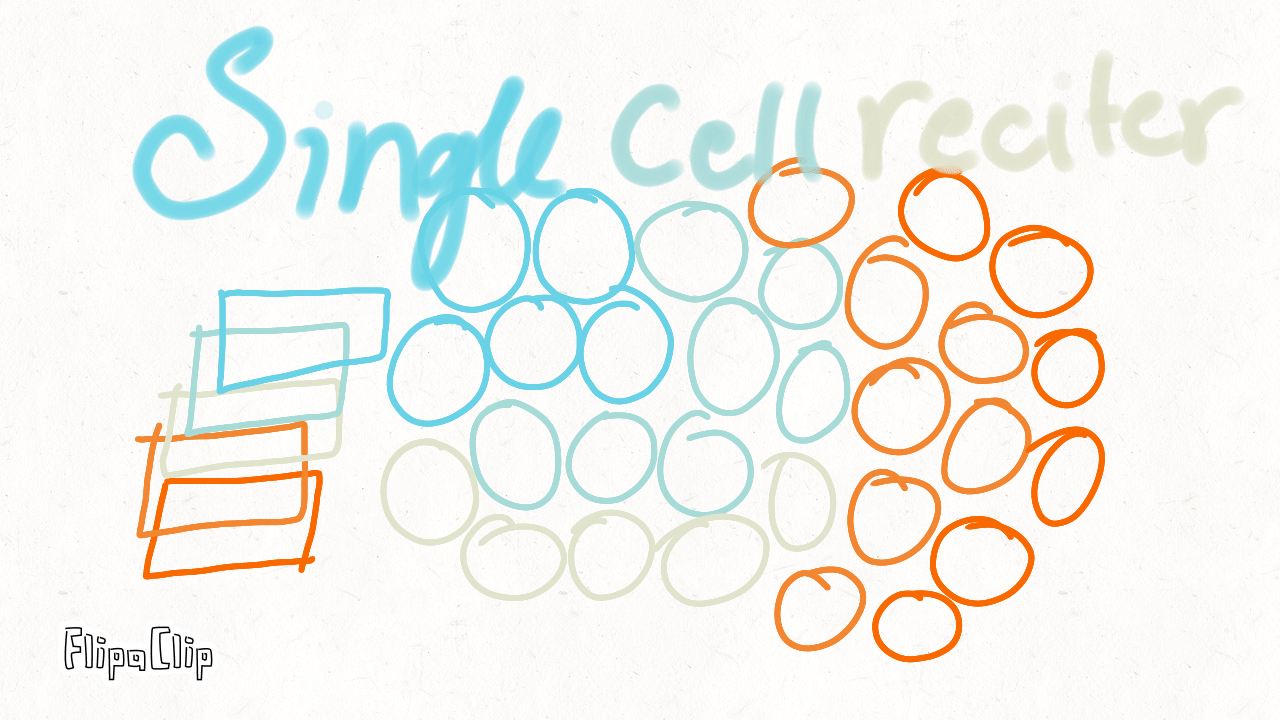 Single Cell reciter
FlipaClip